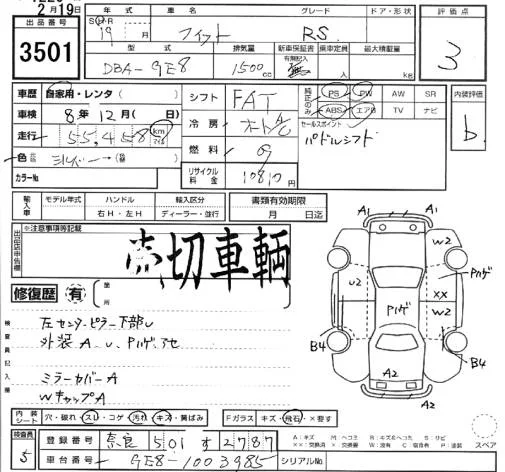 2月19日
年式 車名 グレード ドア・形状 評価点
出品番号
3501
S H R
19 月 フィット RS
3
型式 排気量 新車保証書 乗車定員 最大積載量
有無記入
DBA-GE8 1500cc 無 人 kg
車歴 自家用・レンタ( )
シフト FAT
純正のみ PS PW AW SR
ABS エアB TV ナビ
内装評価
b
車検 8年12月( 日)
冷房 オートA/C
セールスポイント
パドルシフト
走行 55,458 km マイル
燃料 G
色 シルバー→( )
カラーNo.
リサイクル料金 10810円
輸入車 モデル年式 ハンドル 輸入区分 書類有効期限
右H・左H ディーラー・並行 月 日迄
出品店申告欄
※注意事項等記載
売切車輌
修復歴 有
箇所
検査員記入欄
左センターピラー下部U
外装A U、Pハゲ、他
ミラーカバーA
WキャップA
A1 A1
W2
Pハゲ
U2
Pハゲ
XX
W2
B4 B4
A2
A2
スペア
内装シート 穴・破れ・スレ・コゲ・汚れ・キズ・黄ばみ Fガラス キズ・飛石・×要す
検査員
5
登録番号 奈良 501 す 2787
車台番号 GE8-1003985 シリアルNo.
A：キズ M：ヘコミ B：キズをヘコミ S：サビ
××：交換済 ×：交換要 W：波有 C：腐食有 P：塗装